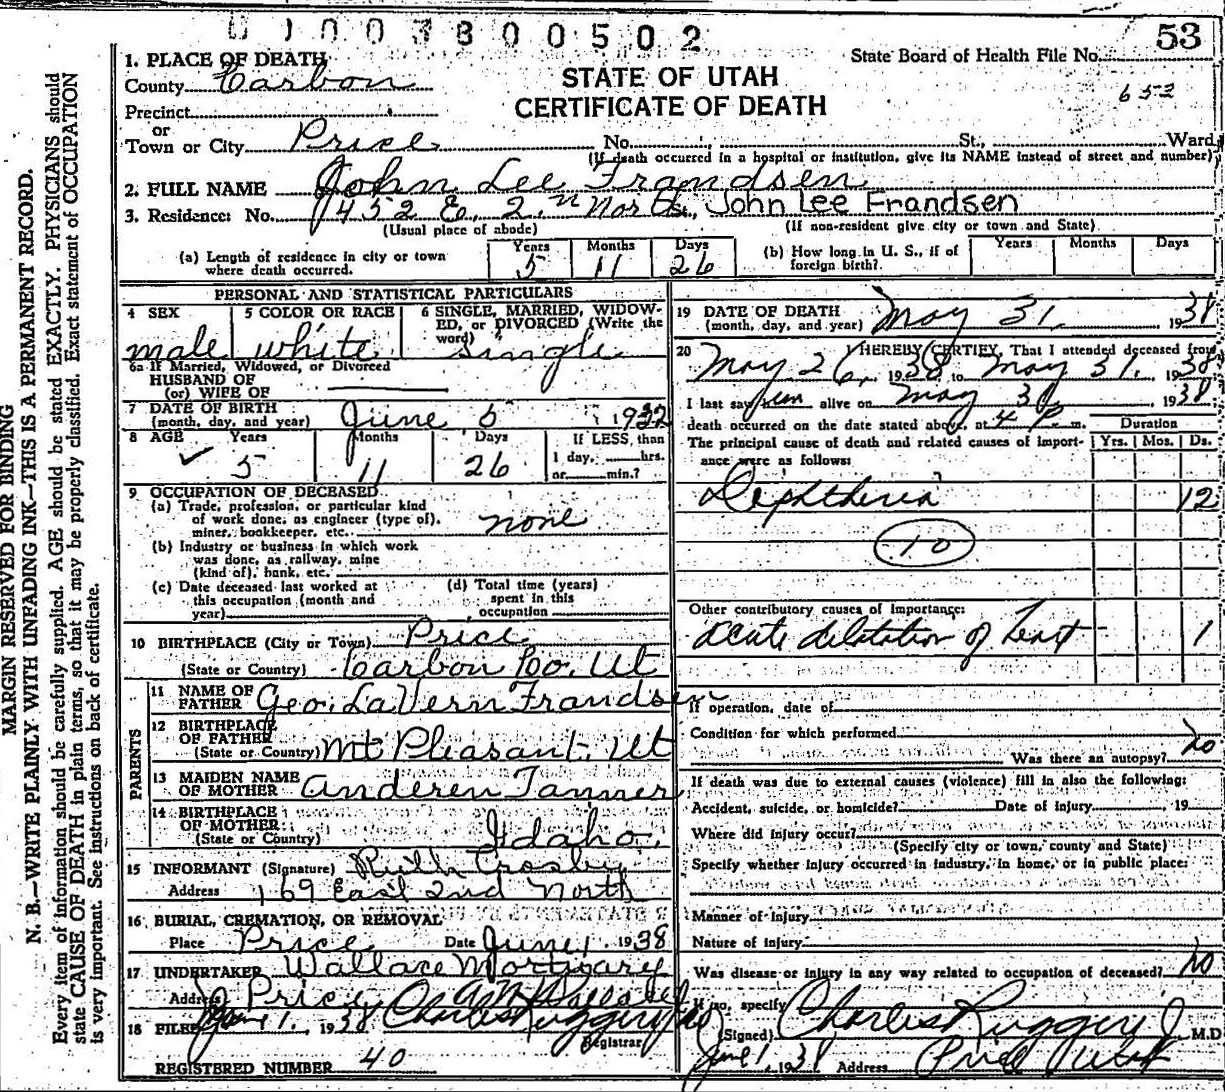 0 1 0 0 3 8 0 0 5 0 2
53
State Board of Health File No.
653
STATE OF UTAH
CERTIFICATE OF DEATH
1. PLACE OF DEATH
County Carbon
Precinct
or
Town or City Price No. St., Ward
(If death occurred in a hospital or institution, give its NAME instead of street and number)
2. FULL NAME John Lee Frandsen
3. Residence: No. 452 E. 2n North, John Lee Frandsen
(Usual place of abode) (If non-resident give city or town and State)
(a) Length of residence in city or town where death occurred. Years 5 Months 11 Days 26
(b) How long in U. S., if of foreign birth? Years Months Days
PERSONAL AND STATISTICAL PARTICULARS
4 SEX male
5 COLOR OR RACE white
6 SINGLE, MARRIED, WIDOWED, or DIVORCED (Write the word) single
6a If Married, Widowed, or Divorced
HUSBAND OF
(or) WIFE OF
7 DATE OF BIRTH
(month, day, and year) June 5 1932
8 AGE Years 5 Months 11 Days 26 If LESS than 1 day, hrs. or min.?
9 OCCUPATION OF DECEASED
(a) Trade, profession, or particular kind
of work done, as engineer (type of),
miner, bookkeeper, etc. none
(b) Industry or business in which work
was done, as railway, mine
(kind of), bank, etc.
(c) Date deceased last worked at
this occupation (month and
year)
(d) Total time (years)
spent in this
occupation
10 BIRTHPLACE (City or Town) Price
(State or Country) Carbon Co. Ut
PARENTS
11 NAME OF
FATHER Geo. LaVern Frandsen
12 BIRTHPLACE
OF FATHER
(State or Country) Mt Pleasant, Ut
13 MAIDEN NAME
OF MOTHER Anderen Tanner
14 BIRTHPLACE
OF MOTHER
(State or Country) Idaho
15 INFORMANT (Signature) Ruth Crosby
Address 169 East 2nd North
16 BURIAL, CREMATION, OR REMOVAL
Place Price Date June 1 1938
17 UNDERTAKER Wallace Mortuary
Address Price
18 FILED June 1, 1938 Charles Ruggeri
Registrar
REGISTERED NUMBER 40
19 DATE OF DEATH
(month, day, and year) May 31, 1938
20 I HEREBY CERTIFY, That I attended deceased from
May 26, 1938 to May 31, 1938
I last saw him alive on May 31, 1938
death occurred on the date stated above, at 4 P. m.
The principal cause of death and related causes of importance were as follows:
Duration
Yrs. Mos. Ds.
Diphtheria 12
10
Other contributory causes of importance:
acute dilatation of heart 1
If operation, date of
Condition for which performed
Was there an autopsy? no
If death was due to external causes (violence) fill in also the following:
Accident, suicide, or homicide? Date of injury , 19
Where did injury occur?
(Specify city or town, county and State)
Specify whether injury occurred in industry, in home, or in public place:
Manner of injury
Nature of injury
Was disease or injury in any way related to occupation of deceased? no
If so, specify
(Signed) Charles Ruggeri Jr M.D
June 1, 1938 Address Price Utah
MARGIN RESERVED FOR BINDING
N. B.—WRITE PLAINLY WITH UNFADING INK—THIS IS A PERMANENT RECORD.
Every item of information should be carefully supplied. AGE should be stated EXACTLY. PHYSICIANS should
state CAUSE OF DEATH in plain terms, so that it may be properly classified. Exact statement of OCCUPATION
is very important. See instructions on back of certificate.